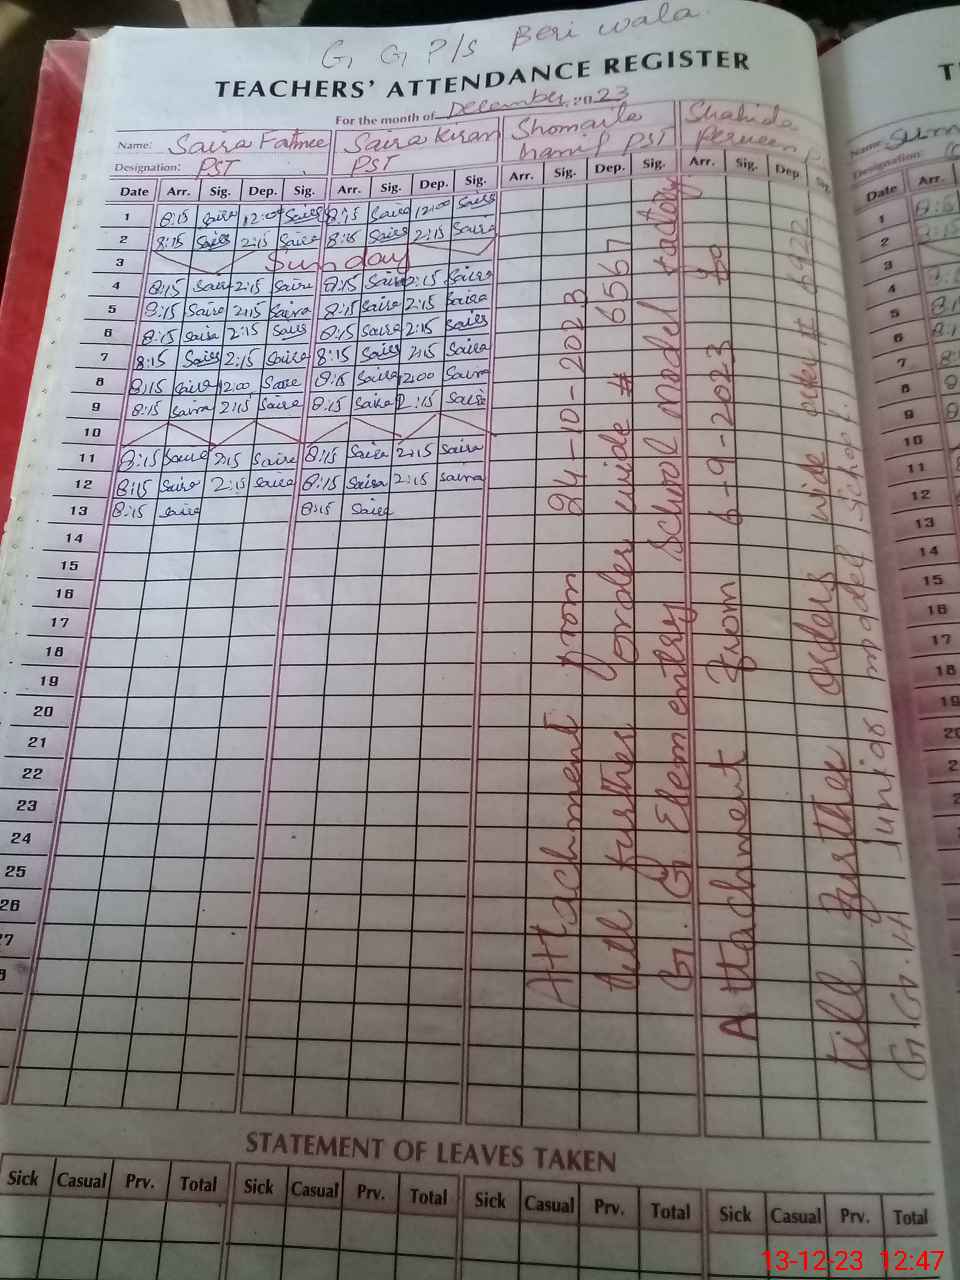 G, G P/S Beri wala
TEACHERS' ATTENDANCE REGISTER
For the month of December 2023
Name: Saira Fatmee Saira Kiran Shomaila hanif PST Shahida Perveen
Designation: PST PST
Date Arr. Sig. Dep. Sig. Arr. Sig. Dep. Sig. Arr. Sig. Dep. Sig. Arr. Sig. Dep. Sig.
1 8:15 Saira 12:00 Saira 8:15 Saira 12:00 Saira
2 8:15 Saira 2:15 Saira 8:15 Saira 2:15 Saira
3 Sunday
4 8:15 Saira 2:15 Saira 8:15 Saira 2:15 Saira
5 8:15 Saira 2:15 Saira 8:15 Saira 2:15 Saira
6 8:15 Saira 2:15 Saira 8:15 Saira 2:15 Saira
7 8:15 Saira 2:15 Saira 8:15 Saira 2:15 Saira
8 8:15 Saira 12:00 Saira 8:15 Saira 12:00 Saira
9 8:15 Saira 2:15 Saira 8:15 Saira 2:15 Saira
10
11 8:15 Saira 2:15 Saira 8:15 Saira 2:15 Saira
12 8:15 Saira 2:15 Saira 8:15 Saira 2:15 Saira
13 8:15 Saira 8:15 Saira
14
15
16
17
18
19
20
21
22
23
24
25
26
Attachment from 24-10-2023
till further order wide # 6567
G. G Elementery School Model factory
Attachment From 6-9-2023 to
till further orders wide order # 6922
G.G.H Junior model School.
STATEMENT OF LEAVES TAKEN
Sick Casual Prv. Total Sick Casual Prv. Total Sick Casual Prv. Total Sick Casual Prv. Total
Name:
Designation:
Date Arr.
1
2
3
4
5
6
7
8
9
10
11
12
13
14
15
16
17
18
19
20
13-12-23 12:47